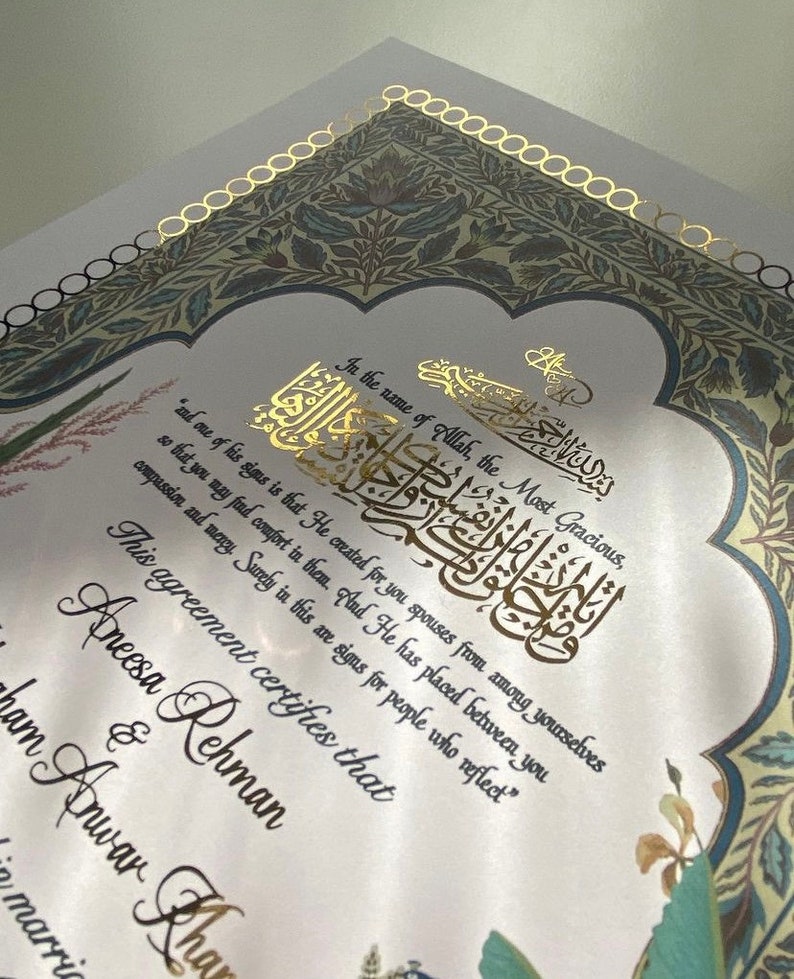 بسم الله الرحمن الرحيم
ومن آياته أن خلق لكم من أنفسكم أزواجا
In the name of Allah, the Most Gracious,
“and one of his signs is that He created for you spouses from among yourselves
so that you may find comfort in them. And He has placed between you
compassion and mercy. Surely in this are signs for people who reflect”
This agreement certifies that
Aneesa Rehman
&
Anwar Khan
in